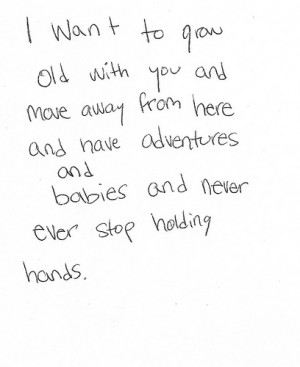 I want to grow
old with you and
move away from here
and have adventures
and
babies and never
ever stop holding
hands.